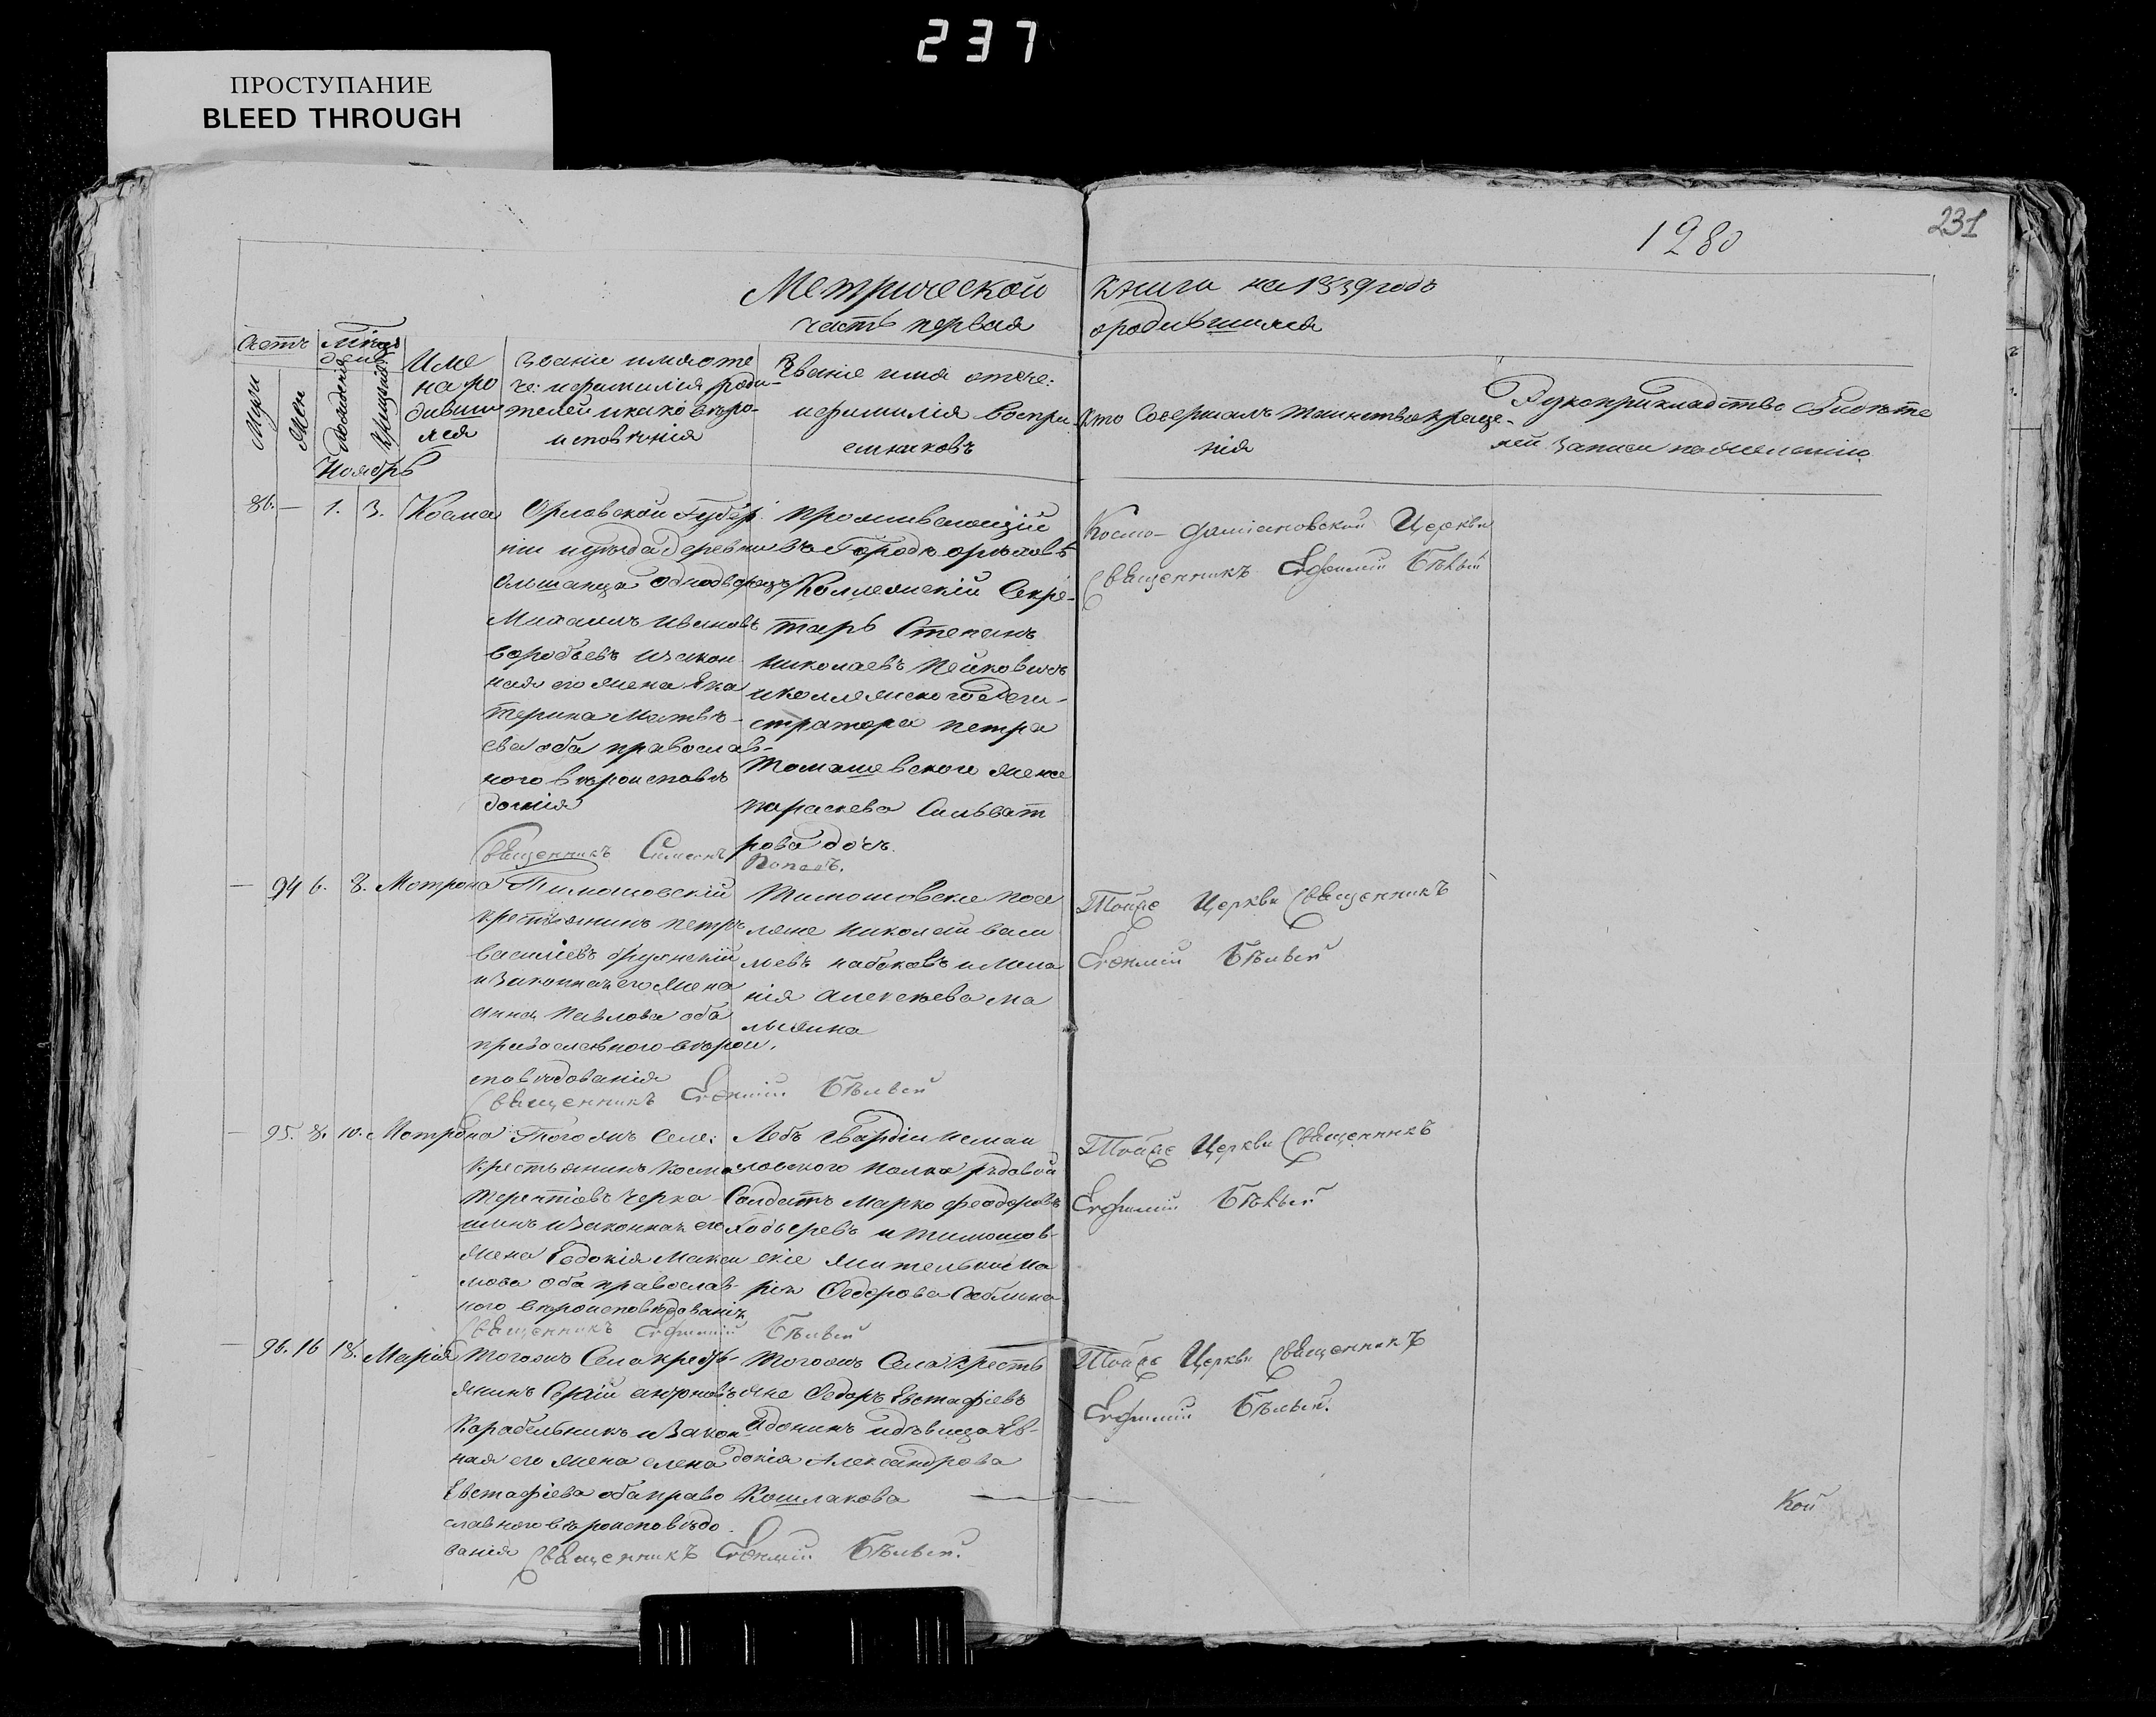 237
ПРОСТУПАНИЕ
BLEED THROUGH
231
1280
Метрической книги на 1839 годъ
часть первая о родившихся
Счетъ
Муж
Жен
Мѣсяцъ
день
Рожденія
Крещенія
Име
на ро
дивши
хся
Звание имя отче
че: и фамилія роди-
телей и какого вѣро-
исповѣнія
Званіе имя отече:
и фамилія воспри
емниковъ
Кто совершалъ таинство креще-
нія
Рукоприкладство свидѣте
лей записи по желанію
Ноябрь
86. — 1. 3. Косма
Орловской Губер:
ніи и уезда деревни
Ольшанца однодворецъ
Михаилъ Ивановъ
воробьевъ и закон
ная его жена Ека
терина Матвѣ-
ева оба православ-
ного вѣроисповѣ
данія
Священникъ Симеонъ Поповъ.
проживающій
въ Городѣ орѣховѣ
Коллежскій Секре-
тарь Степанъ
Николаевъ
и коллежского Реги-
стратора Петра
Томашевского жена
параскева
рова дочь.
Космо-Даміановской Церкви
Священникъ Евфимій Бѣлый
— 94 6. 8. Мотрона
Тимошовскій
крестьянинъ петръ
василіевъ
и законная его жена
Анна Павлова оба
православного вѣрои.
сповѣдованія
Священникъ Евфимій Бѣлый
Тимошовские посе
ляне Николай васи
льевъ набоковъ и Мела
нія Алексѣева ма
лыхина
Тойже Церкви Священникъ
Евфимій Бѣлый
— 95. 8. 10. Мотрона
Того жъ Села:
крестьянинъ Косма
Терентіевъ черка
шинъ и законная его
жена Евдокія Макси
мова оба православ-
ного вѣроисповѣдованія
Священникъ Евфимій Бѣлый
Лебъ Гвардіи Измаи
ловского полка рядовой
Солдатъ Марко феодоровъ
и Тимошов-
ские жительки Ма
рія Федорова Саблина
Тойже Церкви Священникъ
Евфимій Бѣлый
— 96. 16 18. Марія
Того жъ Села кресть-
янинъ Сергій антоновъ
Карабельникъ и закон-
ная его жена елена
Евстафіева оба право
славного вѣроисповѣдо
ванія Священникъ Евфимій Бѣлый.
Того жъ Села кресть
яне Федоръ Евстафіевъ
Адонинъ и дѣвица Ев-
докія Александрова
Кошлакова
Тойже Церкви Священникъ
Евфимій Бѣлый.
Кой